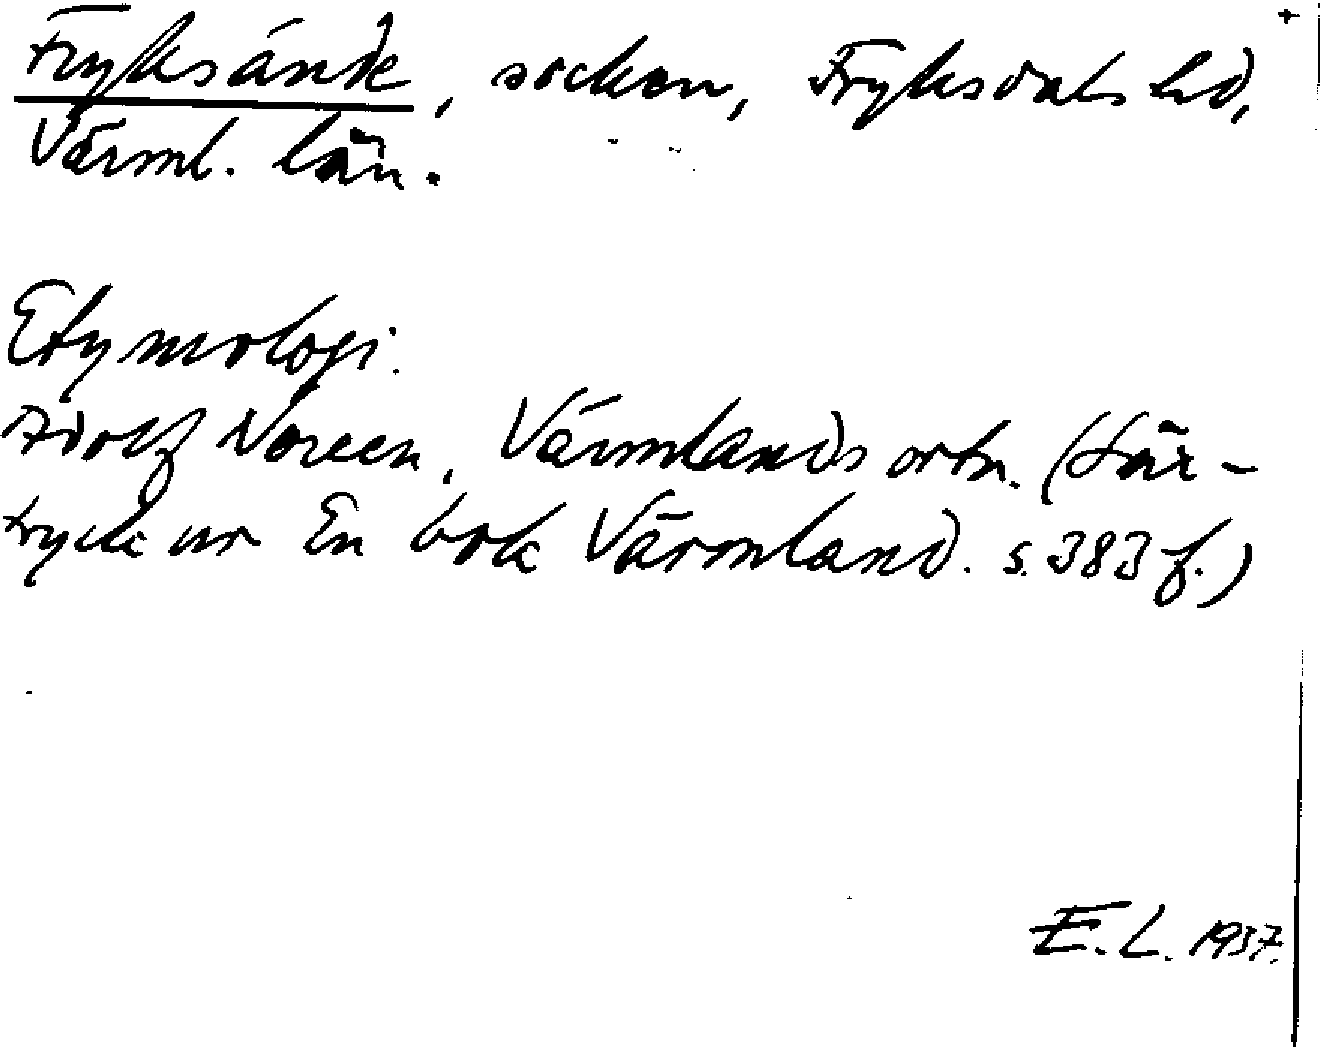 Fryksände, socken, Fryksdals hd,
Värml. län.
Etymologi.
Adolf Noreen, Värmlands ortn. (Sär-
tryck ur En bok Värmland. s. 383 f.)
E. L. 1937.